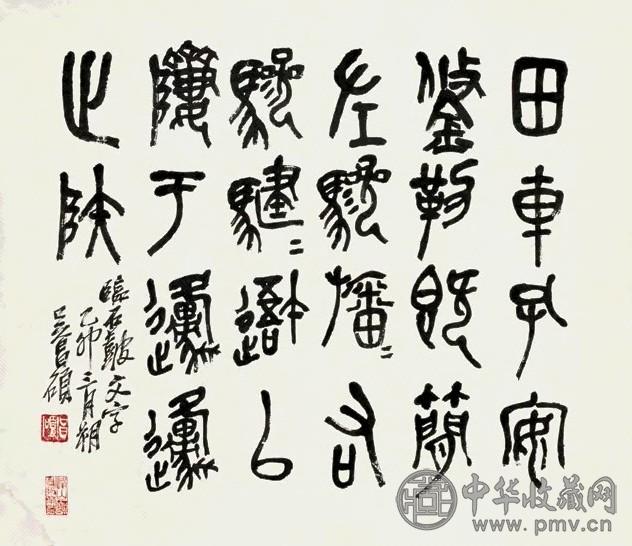 田車孔安
鋚勒既簡
左驂旛〓右
驂騝〓以
隮于邍邍
止陕
臨石鼓文字
乙卯三月朔
吳昌碩
中华收藏网
www.pmv.cn